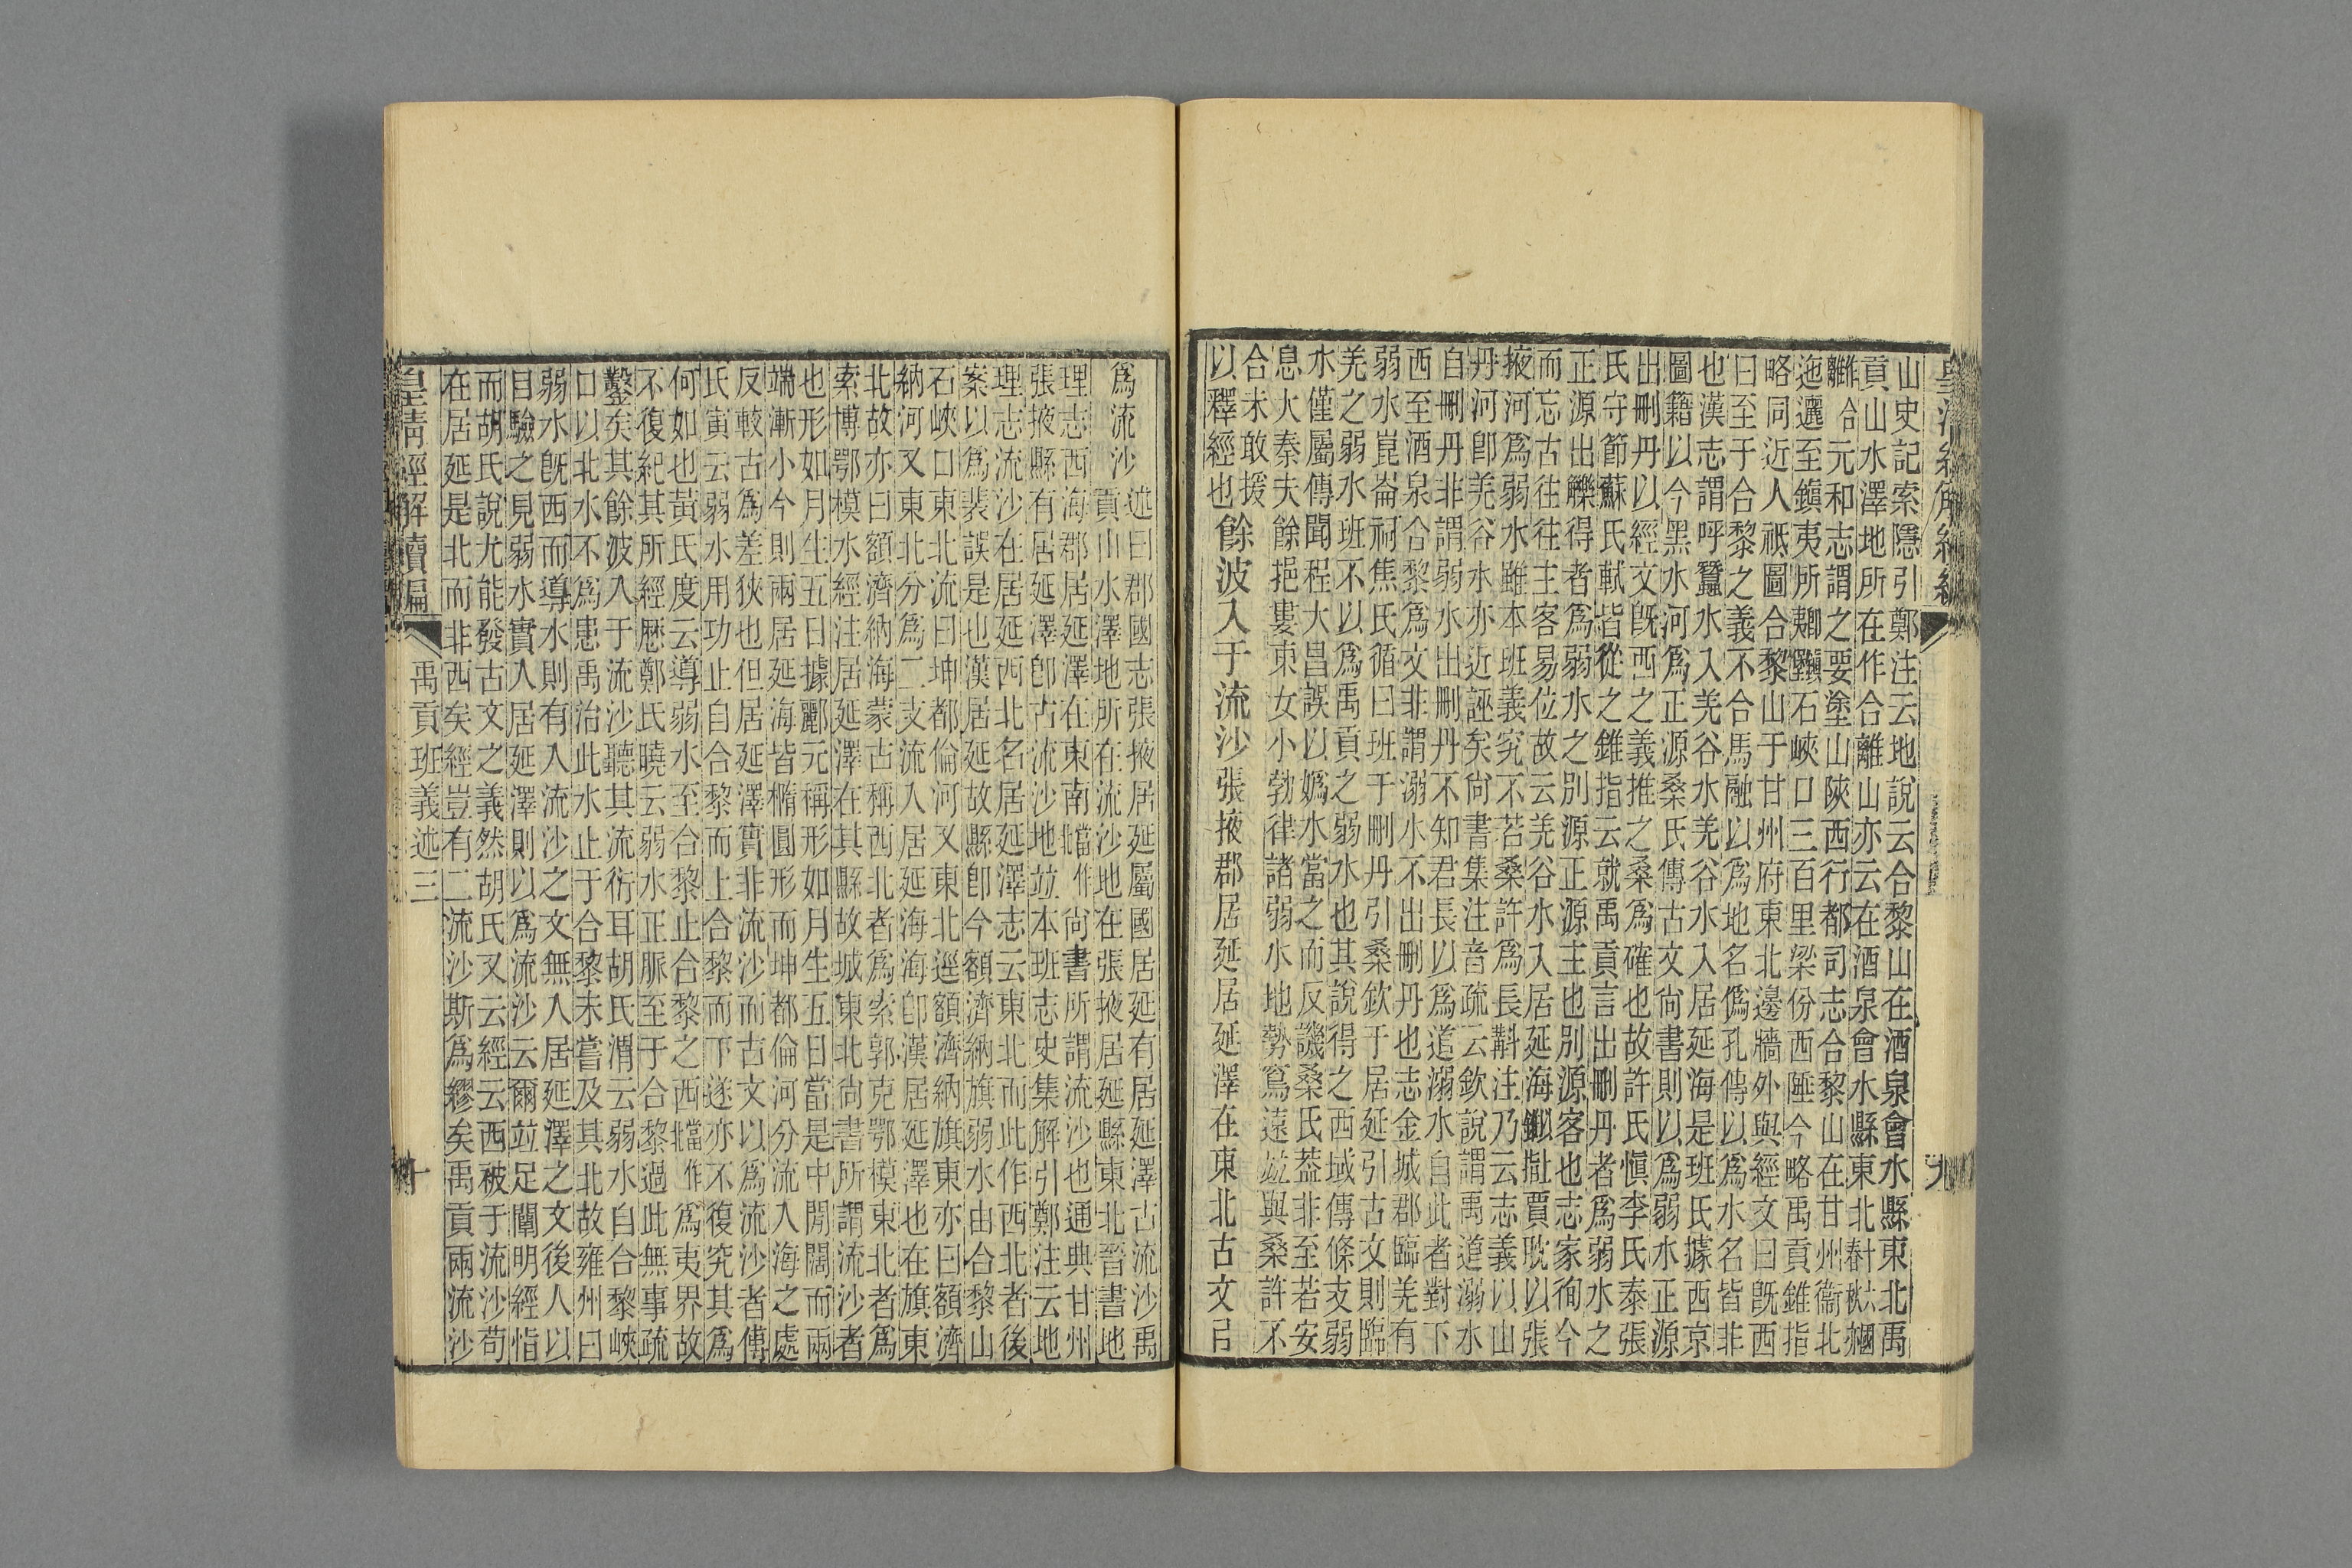 山史記索隱引鄭注云地說云合黎山在酒泉會水縣東北禹
貢山水澤地所在作合離山亦云在酒泉會水縣東北
元和志謂之要塗山陝西行都司志合黎山在甘州衞北
迤邐至鎭夷所石峽口三百里梁份西陲今略禹貢錐指
略同近人祇圖合黎山于甘州府東北邊牆外與經文曰旣西
曰至于合黎之義不合馬融以爲地名僞孔傳以爲水名皆非
也漢志謂呼蠶水入羌谷水羌谷水入居延海是班氏據西京
圖籍以今黑水河爲正源桑氏傳古文尙書則以爲弱水正源
出刪丹以經文旣西之義推之桑爲確也故許氏愼李氏泰張
氏守節蘇氏軾皆從之錐指云就禹貢言出刪丹者爲弱水之
正源出觻得者爲弱水之別源正源主也別源客也志家徇今
而忘古往往主客易位故云羌谷水入居延海賈耽以張
掖河爲弱水雖本班義究不若桑許爲長斠注乃云志義以山
丹河卽羌谷水亦近誣矣尙書集注音疏云欽說謂禹道溺水
自刪丹非謂弱水出刪丹不知君長以爲道溺水自此者對下
西至酒泉合黎爲文非謂溺水不出刪丹也志金城郡臨羌有
弱水崑崙祠焦氏循曰班于刪丹引桑欽于居延引古文則臨
羌之弱水班不以爲禹貢之弱水也其說得之西域傳條支弱
水僅屬傳聞程大昌誤以嬀水當之而反譏桑氏葢非至若安
息大秦夫餘挹婁東女小勃律諸弱水地勢寫遠竝與桑許不
合未敢援
以釋經也餘波入于流沙張掖郡居延居延澤在東北古文㠯
爲流沙述曰郡國志張掖居延屬國居延有居延澤古流沙禹
貢山水澤地所在流沙地在張掖居延縣東北晉書地
理志西海郡居延澤在東南尙書所謂流沙也通典甘州
張掖縣有居延澤卽古流沙地竝本班志史集解引鄭注云地
理志流沙在居延西北名居延澤志云東北而此作西北者後
案以爲裴誤是也漢居延故縣卽今額濟納旗弱水由合黎山
石峽口東北流曰坤都倫河又東北逕額濟納旗東亦曰額濟
納河又東北分爲二支流入居延海海卽漢居延澤也在旗東
北故亦曰額濟納海蒙古稱西北者爲索郭克鄂模東北者爲
索博鄂模水經注居延澤在其縣故城東北尙書所謂流沙者
也形如月生五日據酈元稱形如月生五日當是中閒闊而兩
端漸小今則兩居延海皆橢圓形而坤都倫河分流入海之處
反較古爲差狹也但居延澤實非流沙而古文以爲流沙者傳
氏寅云弱水用功止自合黎而上合黎而下遂亦不復究其爲
何如也黃氏度云導弱水至合黎止合黎之西爲夷界故
不復紀其所經歷鄭氏曉云弱水正脈至于合黎過此無事疏
鑿矣其餘波入于流沙聽其流衍耳胡氏渭云弱水自合黎峽
口以北水不爲患禹治此水止于合黎未嘗及其北故雍州曰
弱水旣西而導水則有入流沙之文無入居延澤之文後人以
目驗之見弱水實入居延澤則以爲流沙云爾竝足闡明經恉
而胡氏說尤能發古文之義然胡氏又云經云西被于流沙苟
在居延是北而非西矣經豈有二流沙斯爲繆矣禹貢兩流沙
皇淸經解續編
禹貢班義述三
十